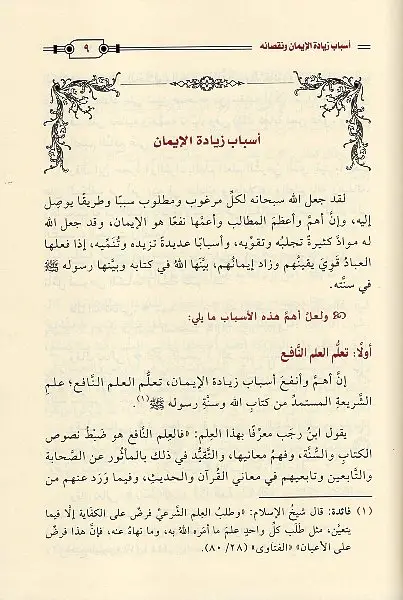 أسباب زيادة الإيمان ونقصانه
٩
أسباب زيادة الإيمان
لقد جعل الله سبحانه لكلِّ مرغوب ومطلوب سببًا وطريقًا يوصِل
إليه، وإنَّ أهمَّ وأعظمَ المطالب وأعمَّها نفعًا هو الإيمان، وقد جعل الله
له موادَّ كثيرةً تجلبُه وتقوِّيه، وأسبابًا عديدةً تزيده وتُنَمِّيه، إذا فعلها
العبادُ قَوِيَ يقينُهم وزاد إيمانُهم، بيَّنها اللهُ في كتابه وبيَّنها رسوله ﷺ
في سنَّته.
ولعلَّ أهمَّ هذه الأسباب ما يلي:
أولًا: تعلُّم العلم النَّافع
إنَّ أهمَّ وأنفعَ أسباب زيادة الإيمان، تعلُّم العلم النَّافع؛ علمِ
الشَّريعةِ المستمدِّ من كتابِ الله وسنَّةِ رسوله ﷺ(١).
يقول ابنُ رجَب معرِّفًا بهذا العِلم: «فالعِلم النَّافع هو ضَبْطُ نصوص
الكتاب والسُّنَّة، وفهمُ معانيها، والتَّقيُّد في ذلك بالمأثور عن الصَّحابة
والتَّابعين وتابعيهم في معاني القرآن والحديثِ، وفيما وَرَد عنهم من
(١) فائدة: قال شيخُ الإسلام: «وطلبُ العِلم الشَّرعيِّ فرضٌ على الكفاية إلَّا فيما
يتعيَّن، مثل طلَب كلِّ واحدٍ علمَ ما أمَره اللهُ به، وما نهاه عنه، فإنَّ هذا فرضٌ
على الأعيان» «الفتاوى» (٢٨/ ٨٠).